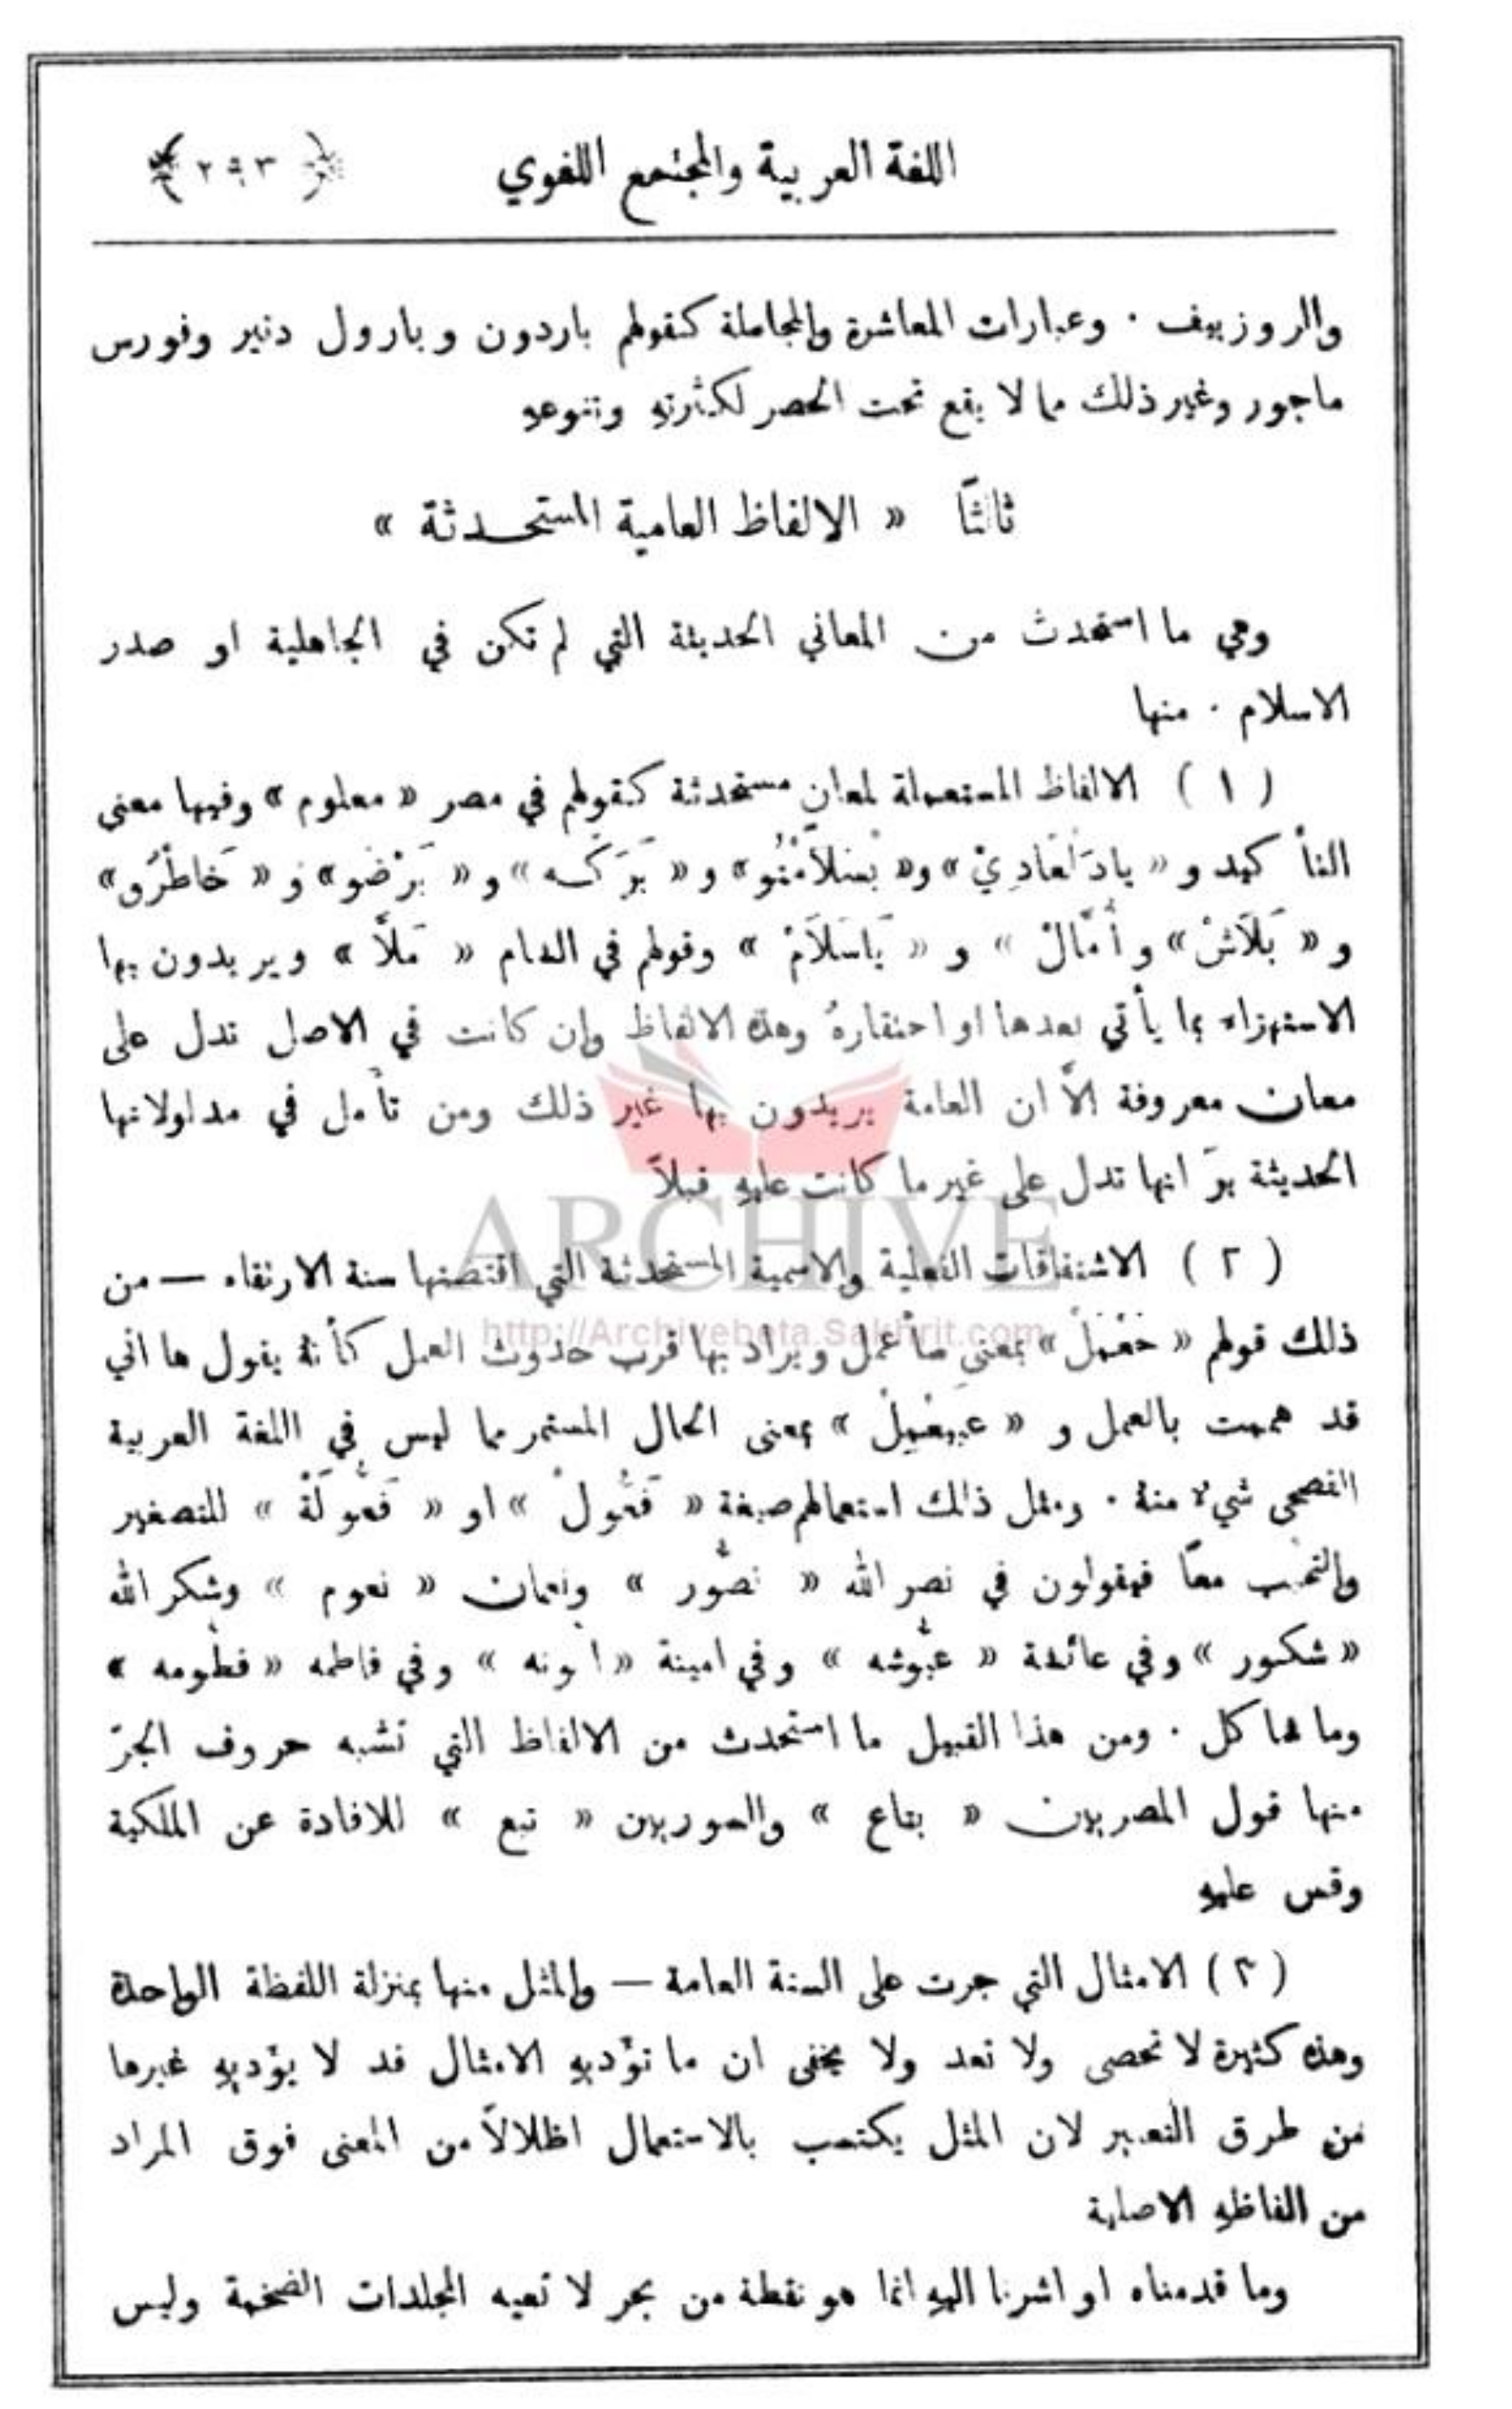 اللغة العربية والمجتمع اللغوي ﴿ ٢٩٣ ﴾
والروزبيف · وعبارات المعاشرة والمجاملة كقولهم باردون وبارول دنير وفورس
ماجور وغير ذلك مما لا يقع تحت الحصر لكثرته وتنوعه
ثالثًا « الالفاظ العامية المستحدثة »
وهي ما استحدث من المعاني الحديثة التي لم تكن في الجاهلية او صدر
الاسلام · منها
( ١ ) الالفاظ المستعملة لمعانٍ مستحدثة كقولهم في مصر « معلوم » وفيها معنى
التأكيد و « يادَلْعَادِيْ » و« بسلامْتُو » و « بَرَكه » و « بَرْضو » و « خَاطْرُو»
و « بَلاَشْ » و أُمَّالْ » و « يَاسَلاَمْ » وقولهم في الشام « مَلاَّ » ويريدون بها
الاستهزاء بما يأتي بعدها او احتقارهُ وهذه الالفاظ وان كانت في الاصل تدل على
معان معروفة الاَّ ان العامة يريدون بها غير ذلك ومن تأمل في مدلولاتها
الحديثة يرَ انها تدل على غير ما كانت عليهِ قبلاً
ARCHIVE
( ٢ ) الاشتقاقات الفعلية والاسمية المستحدثة التي اقتضتها سنة الارتقاء — من
http://Archivebeta.Sakhrit.com
ذلك قولهم « حَعْمَلْ » بمعنى سأعمل ويراد بها قرب حدوث العمل كأنهُ يقول ها اني
قد هممت بالعمل و « عَبِيعْمِلْ » بمعنى الحال المستمر مما ليس في اللغة العربية
الفصحى شيءٌ منهُ · ومثل ذلك استعمالهم صيغة « فَعُّولْ » او « فَعُّولَةْ » للتصغير
والتحبب معًا فيقولون في نصر الله « نصُّور » ونعمان « نعوم » وشكر الله
« شكور » وفي عائدة « عيُّوشه » وفي امينة « امونه » وفي فاطمه « فطومه »
وما شاكل · ومن هذا القبيل ما استحدث من الالفاظ التي تشبه حروف الجرّ
منها قول المصريين « بتاع » والسوريين « تبع » للافادة عن الملكية
وقس عليهِ
( ٣ ) الامثال التي جرت على السنة العامة — والمثل منها بمنزلة اللفظة الواحدة
وهذه كثيرة لا تحصى ولا تعد ولا يخفى ان ما تؤديهِ الامثال قد لا يؤديهِ غيرها
من طرق التعبير لان المثل يكتسب بالاستعمال اظلالاً من المعنى فوق المراد
من الفاظهِ الاصلية
وما قدمناه او اشرنا اليهِ انما هو نقطة من بحر لا تعيه المجلدات الضخمة وليس